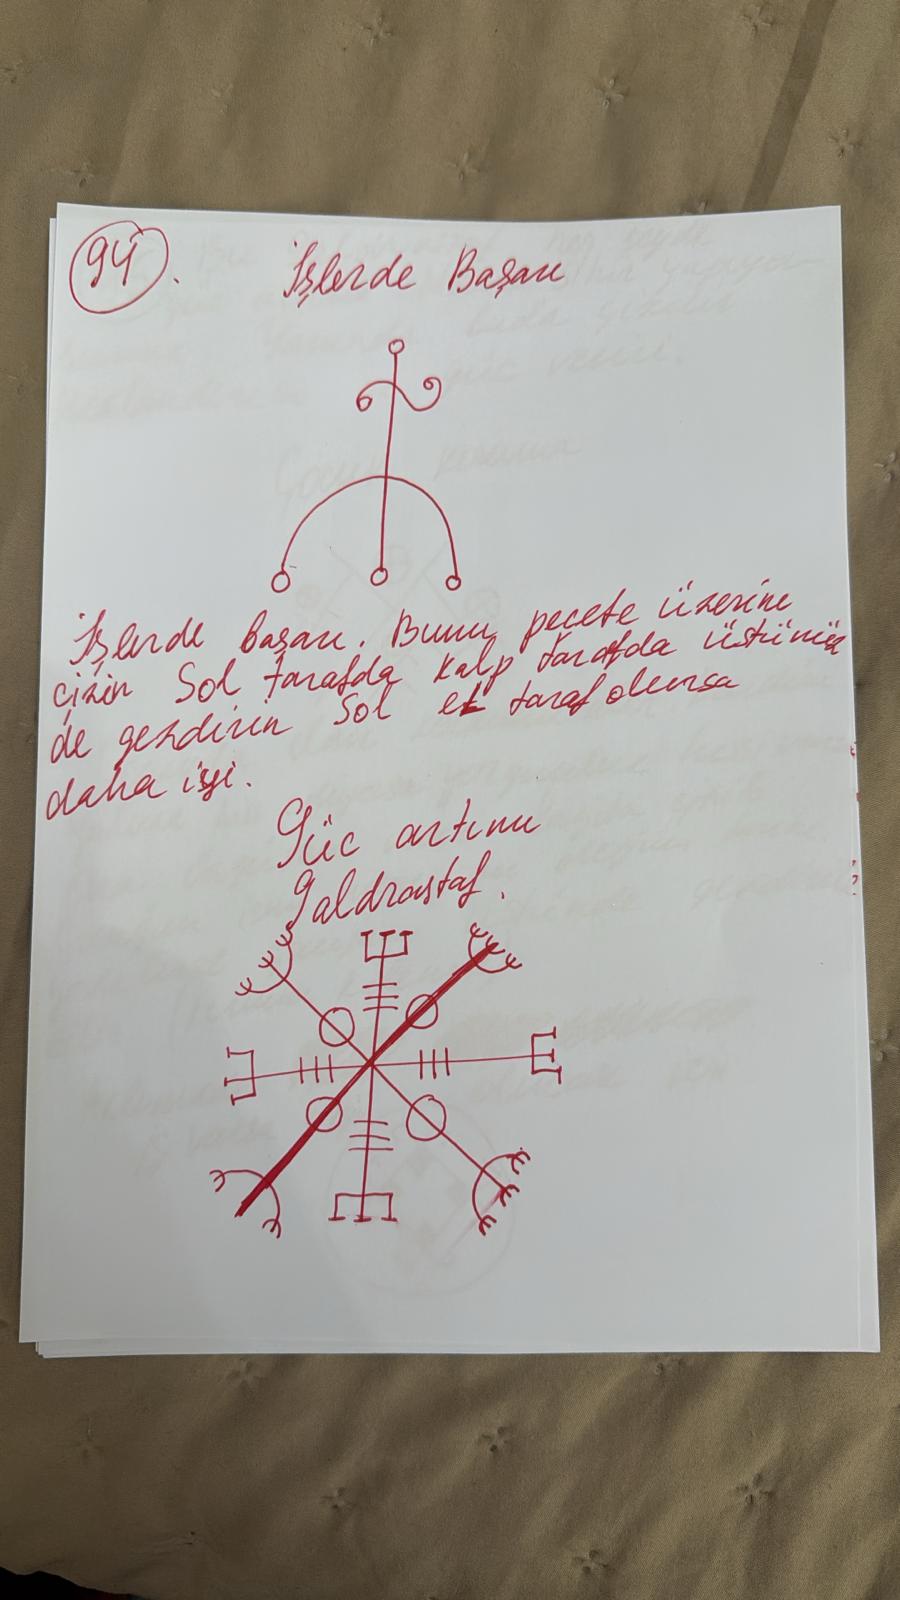 94.
İşlerde Başarı
İşlerde başarı. Bunu peçete üzerine
çizin Sol tarafda kalp tarafda üstünüz
de gezdirin Sol el taraf olursa
daha iyi.
Güc artımı
Galdrastaf.